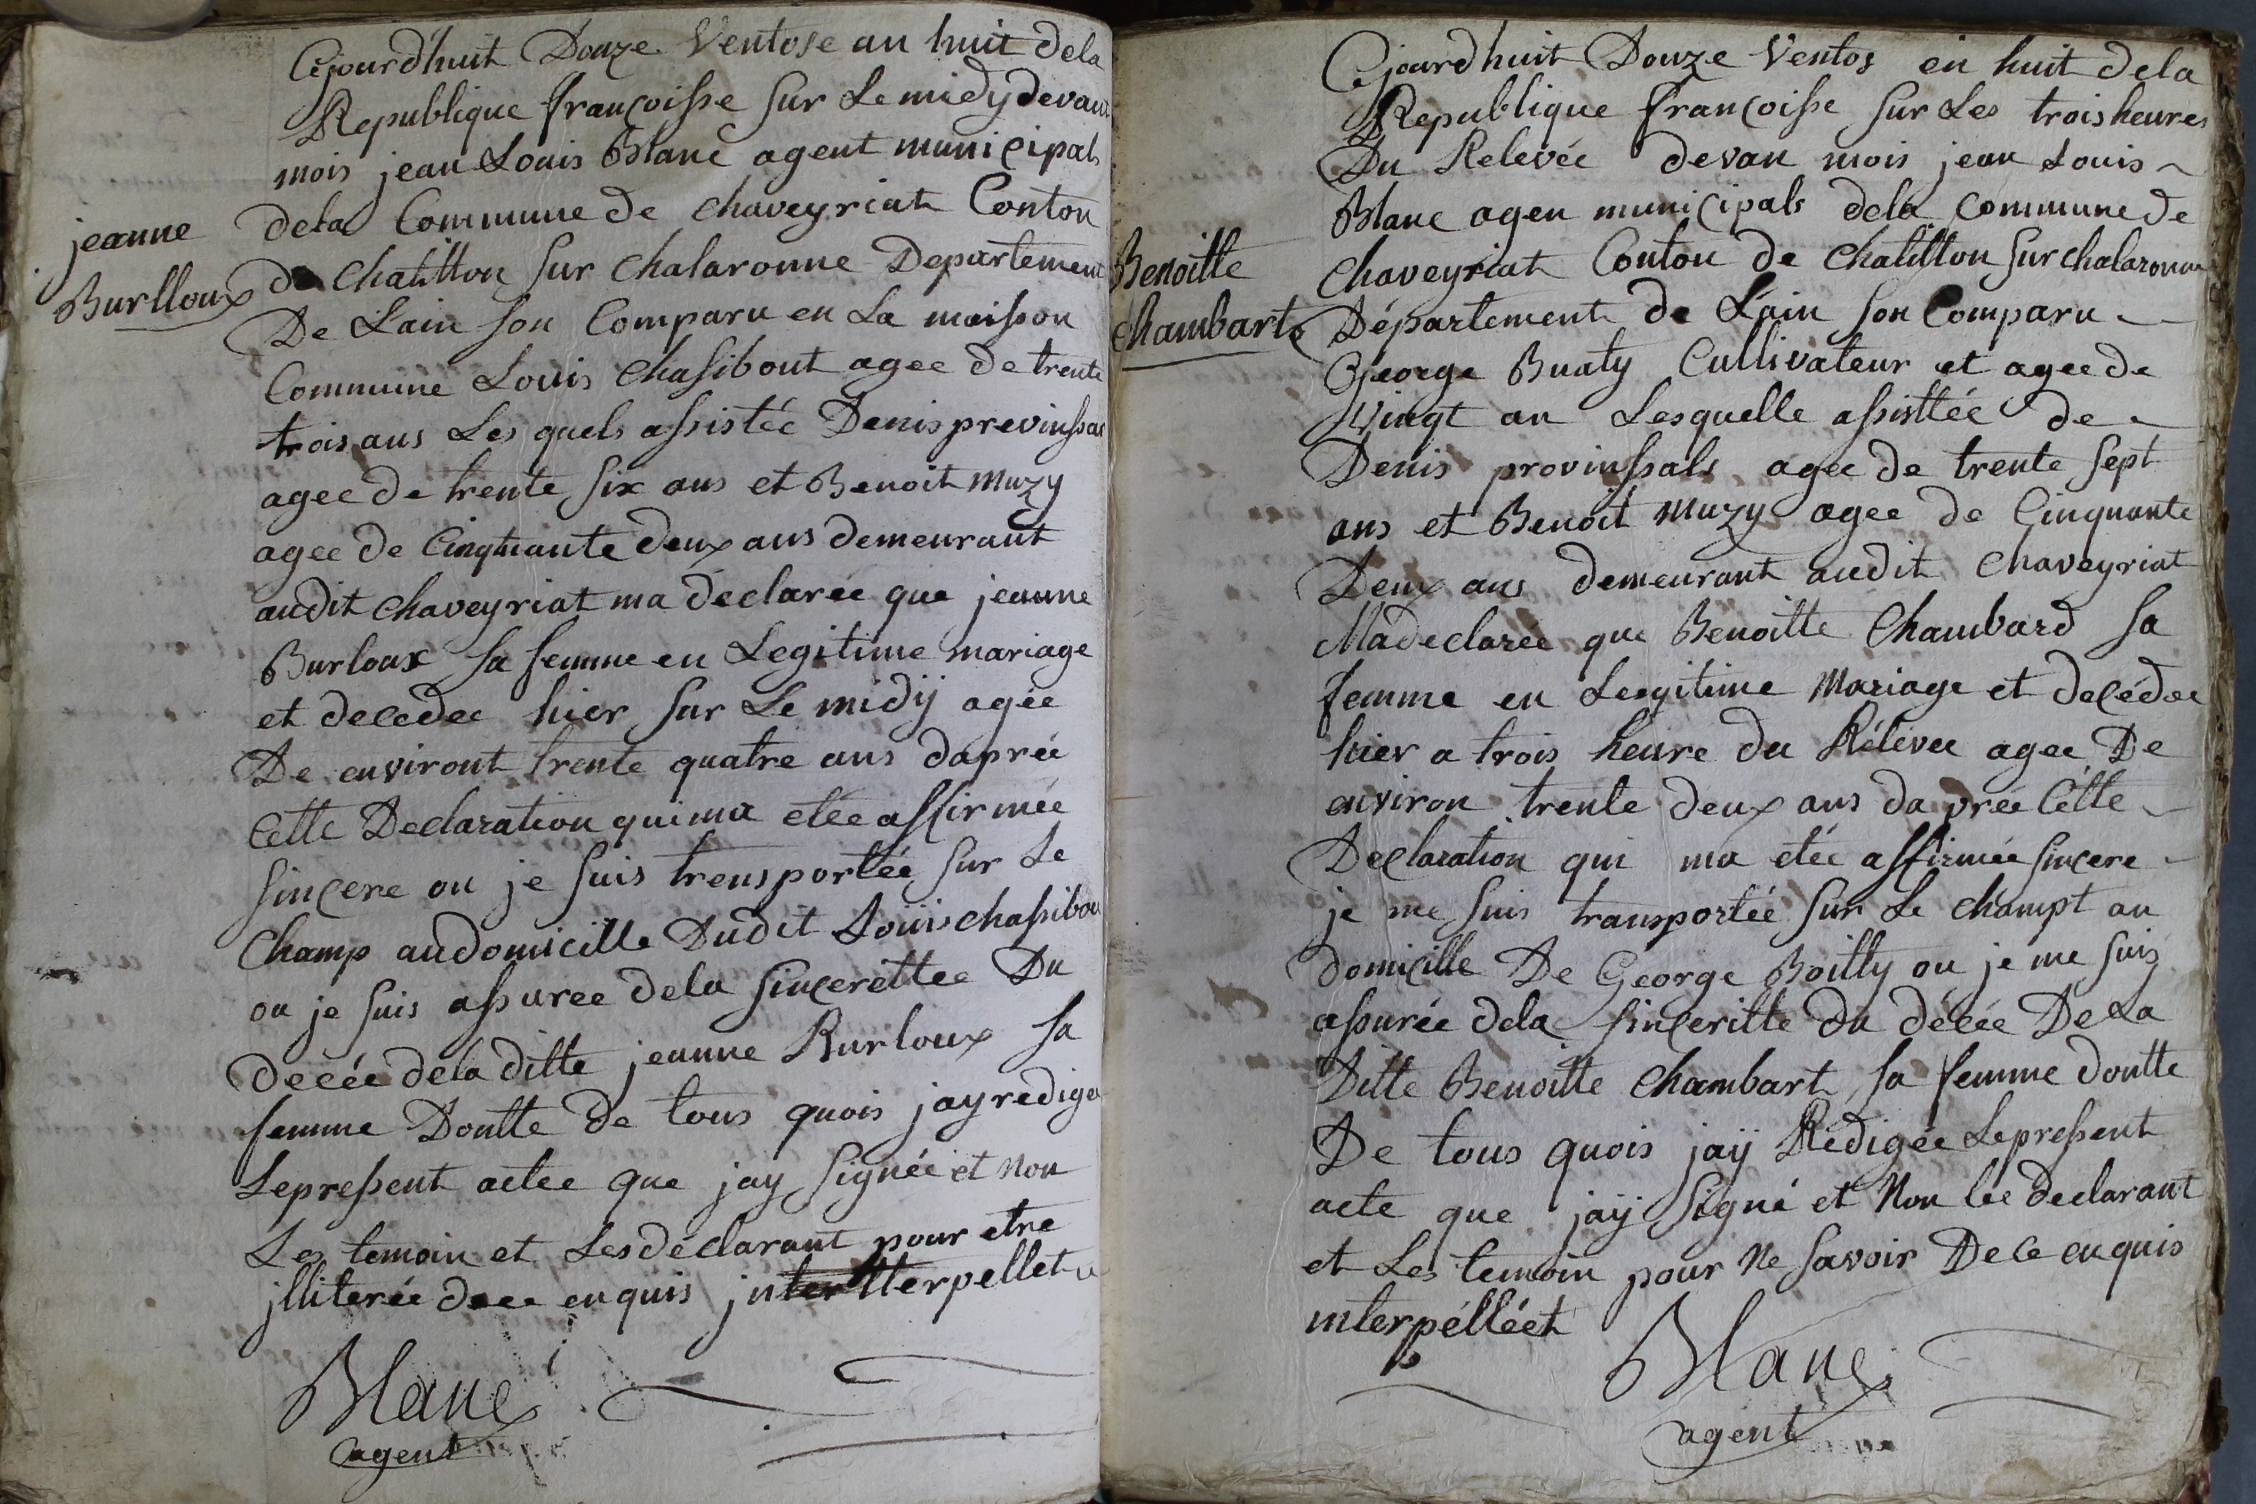 Cejourd'huit Douze Ventose an huit dela
Republique françoisse sur Le midy devant
mois jean Louis Blanc agent municipals
dela Commune de chaveyriat Conton
de chatitton sur chalaronne Departement
De Lain son Comparu en La maisson
Commune Louis chasibout agee de trente
trois ans Les quels assistée Denis previnssal
agee de trente six ans et Benoit muzy
agee de Cinquante deux ans demeurant
audit chaveyriat ma declarée que jeanne
Burloux sa femme en Legitime mariage
et decedee hier sur Le midÿ agée
De environt trente quatre ans daprée
Cette Declaration qui ma etée affirmée
sincere ou je suis trensportée sur Le
Champ au domicille Dudit Louis chassibou
ou je suis assuree dela sincerettee Du
decée dela ditte jeanne Burloux sa
femme Doutte de tous quois jay redigé
Lepressent actee que jay signée et non
Les temoin et Les déclarant pour etre
jlliterée dece enquis interpellet
jeanne
Burlloux
Blanc
agent
Cejourdhuit Douze Ventos en huit dela
Republique françoisse sur Les troisheures
Du Relevée devan mois jean Louis
Blanc agen municipals dela commune de
chaveyriat Conton de chatitton sur chalaronne
Département de Lain son Comparu
George Buaty Cultivateur et agee de
Vingt an Lesquelle assisttée de
Denis provinssals agee de trente sept
ans et Benoit muzy agee de Cinquante
Deux ans demeurant audit chaveyriat
Madeclarée que Benoitte Chambard sa
femme en Lesgitime Mariage et decédee
hier a trois heure du Rélevee agee De
environ trente deux ans da prée Cétte
Declaration qui ma etée affirmée sincere
je me suis transportée sur Le champt au
domicille De George Boitty ou je me suis
assurée dela sinceritte du décée De La
Ditte Benoitte chambart sa femme doutte
De tous quois jaÿ Rédigée Lepressent
acte que jaÿ signé et Non lee declarant
et Les temoin pour Ne savoir De ce enquis
interpélléét
Benoitte
chambart
Blanc
agent